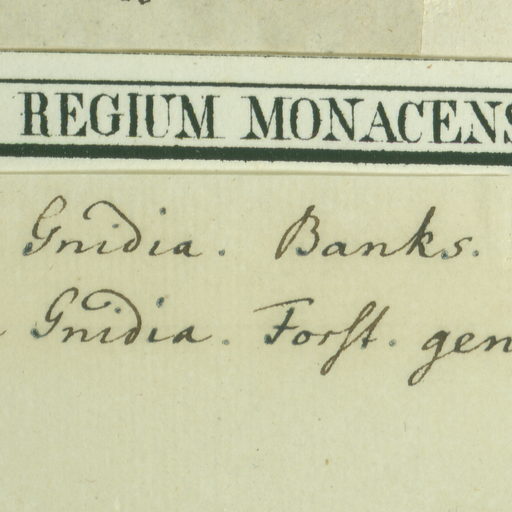 REGIUM MONACENS
Gnidia. Banks.
Gnidia. Forst. gen